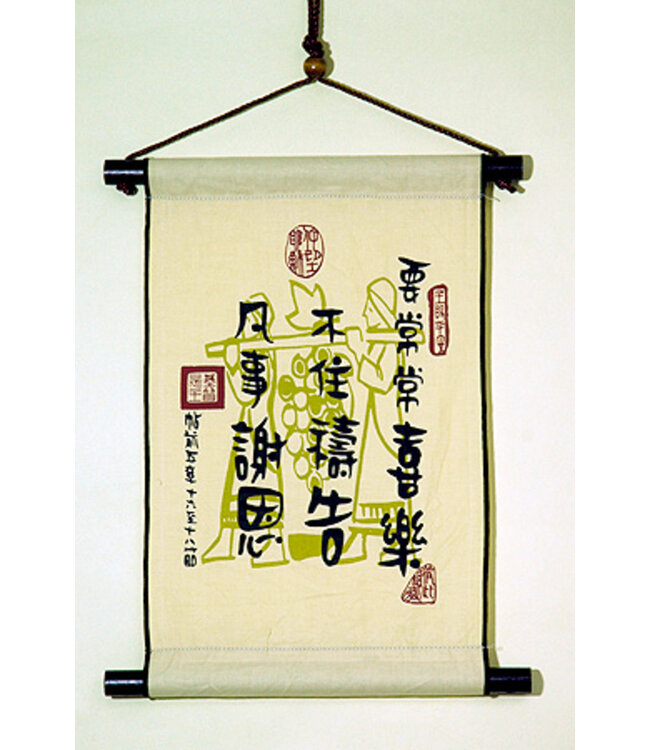 要常常喜樂
不住禱告
凡事謝恩
帖前五章十六至十八節